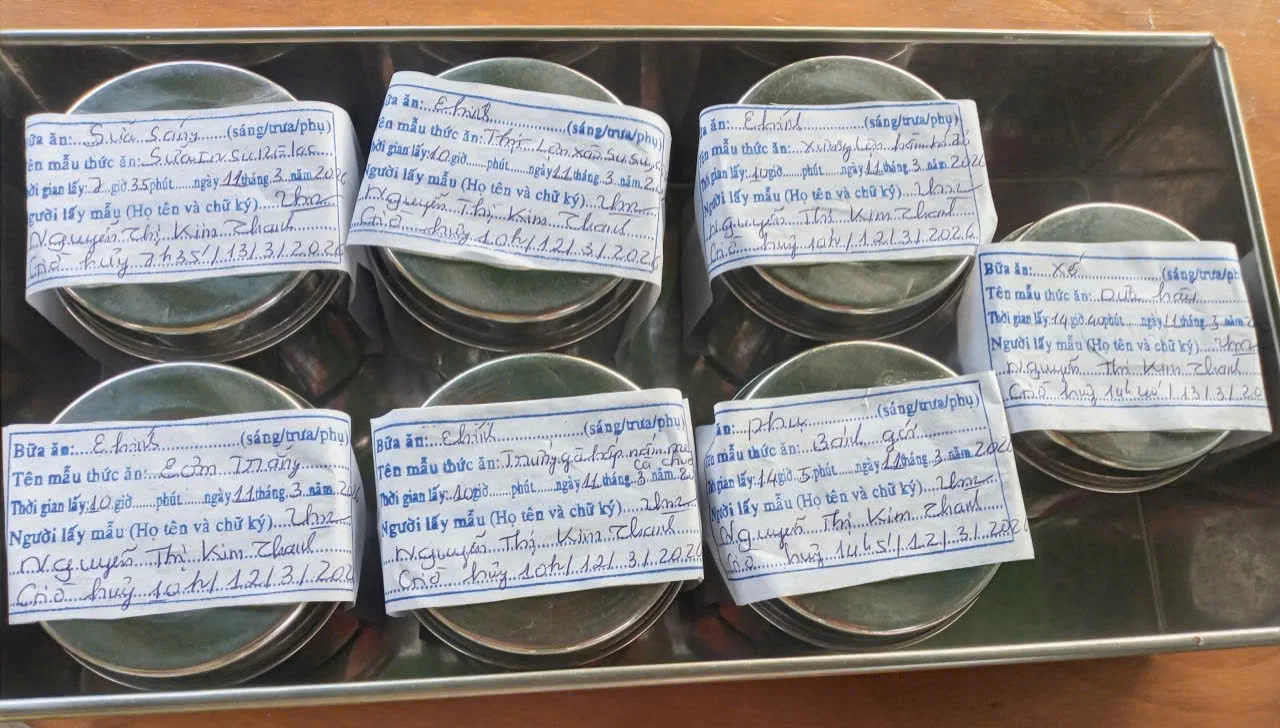 ữa ăn: Sữa Sáng (sáng/trưa/phụ)
ên mẫu thức ăn: Sữa
ời gian lấy: 7 giờ 35 phút ngày 11 tháng 3 năm 202
gười lấy mẫu (Họ tên và chữ ký)
Nguyễn Thị Kim Thanh
Giờ hủy 7h35'/13/3/2026
ữa ăn: Chính (sáng/trưa/phụ)
ên mẫu thức ăn: Thịt xào su su,
hời gian lấy: 10 giờ phút ngày 11 tháng 3 năm 2
gười lấy mẫu (Họ tên và chữ ký)
Nguyễn Thị Kim Thanh
Giờ hủy 10h/12/3/2026
ữa ăn: Chính (sáng/trưa/phụ)
ên mẫu thức ăn: Xương hầm bí đỏ
hời gian lấy: 10 giờ phút ngày 11 tháng 3 năm 202
Người lấy mẫu (Họ tên và chữ ký)
Nguyễn Thị Kim Thanh
Giờ hủy 10h/12/3/2026
Bữa ăn: Xế (sáng/trưa/ph
Tên mẫu thức ăn: Dưa hấu
Thời gian lấy: 14 giờ 40 phút ngày 11 tháng 3 năm 2
Người lấy mẫu (Họ tên và chữ ký)
Nguyễn Thị Kim Thanh
Giờ hủy 14h40'/13/3/20
Bữa ăn: Chính (sáng/trưa/phụ)
Tên mẫu thức ăn: Cơm Trắng
Thời gian lấy: 10 giờ phút ngày 11 tháng 3 năm 20
Người lấy mẫu (Họ tên và chữ ký)
Nguyễn Thị Kim Thanh
Giờ hủy 10h/12/3/202
Bữa ăn: Chính (sáng/trưa/phụ)
Tên mẫu thức ăn: Trứng gà hấp nấm
cà chua
Thời gian lấy: 10 giờ phút ngày 11 tháng 3 năm 20
Người lấy mẫu (Họ tên và chữ ký)
Nguyễn Thị Kim Thanh
Giờ hủy 10h/12/3/202
ăn: Phụ (sáng/trưa/phụ)
n mẫu thức ăn: Bánh gối
hời gian lấy: 14 giờ 5 phút ngày 11 tháng 3 năm 202
gười lấy mẫu (Họ tên và chữ ký)
Nguyễn Thị Kim Thanh
Giờ hủy 14h5'/12/3/202